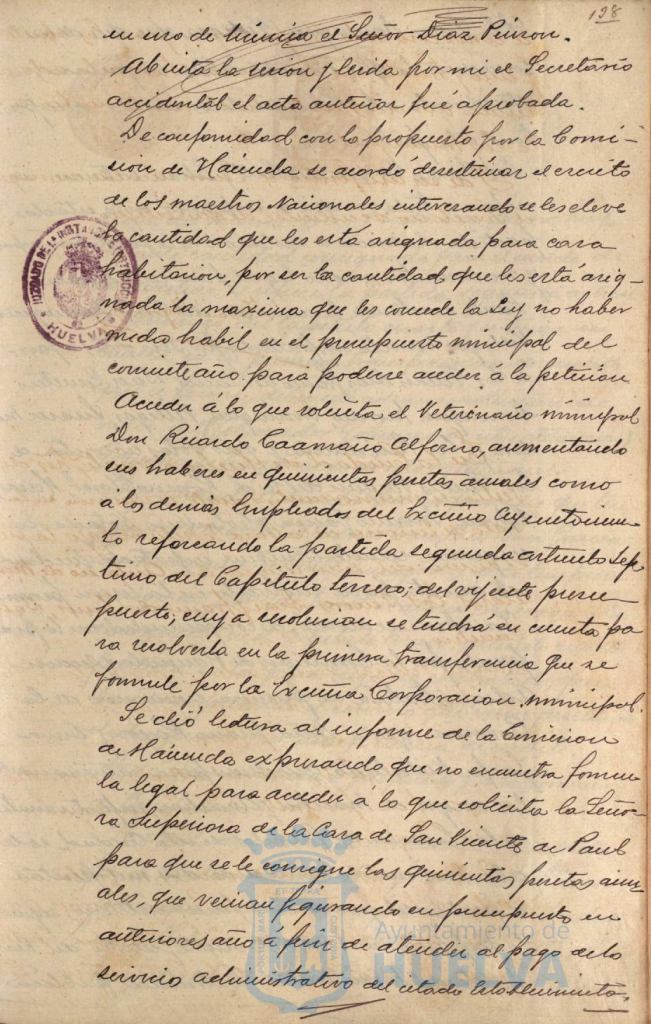 198
en uso de licencia el Señor Diaz Pinzon.
Abierta la sesion y leida por mi el Secretario
accidental el acta anterior fué aprobada.
De conformidad con lo propuesto por la Comi-
sion de Hacienda se acordó desestimar el escrito
de los maestros Nacionales interesando se les eleve
la cantidad que les está asignada para casa
habitacion, por ser la cantidad que les está asig-
nada la maxima que les concede la Ley no haber
medio habil en el presupuesto municipal del
corriente año para poderse acceder á la peticion
Acceder á lo que solicita el Veterinario municipal
Don Ricardo Caamaño Alfonso, aumentando
sus haberes en quinientas pesetas anuales como
á los demás Empleados del Excmo Ayuntamien-
to reforzando la partida segunda articulo sep-
timo del Capitulo tercero; del vijente presu-
puesto, cuya resolucion se tendrá en cuenta pa
ra resolverla en la primera transferencia que se
formule por la Excma Corporacion municipal.
Se dió lectura al informe de la Comision
de Hacienda expresando que no encuentra formu-
la legal para acceder á lo que solicita la Seño-
ra Superiora de la Casa de San Vicente de Paul
para que se le consigne las quinientas pesetas anu-
ales, que venian figurando en presupuesto en
anteriores año á fin de atender al pago de lo
servicio administrativo del citado Establecimiento
HUELVA
Ayuntamiento de
HUELVA